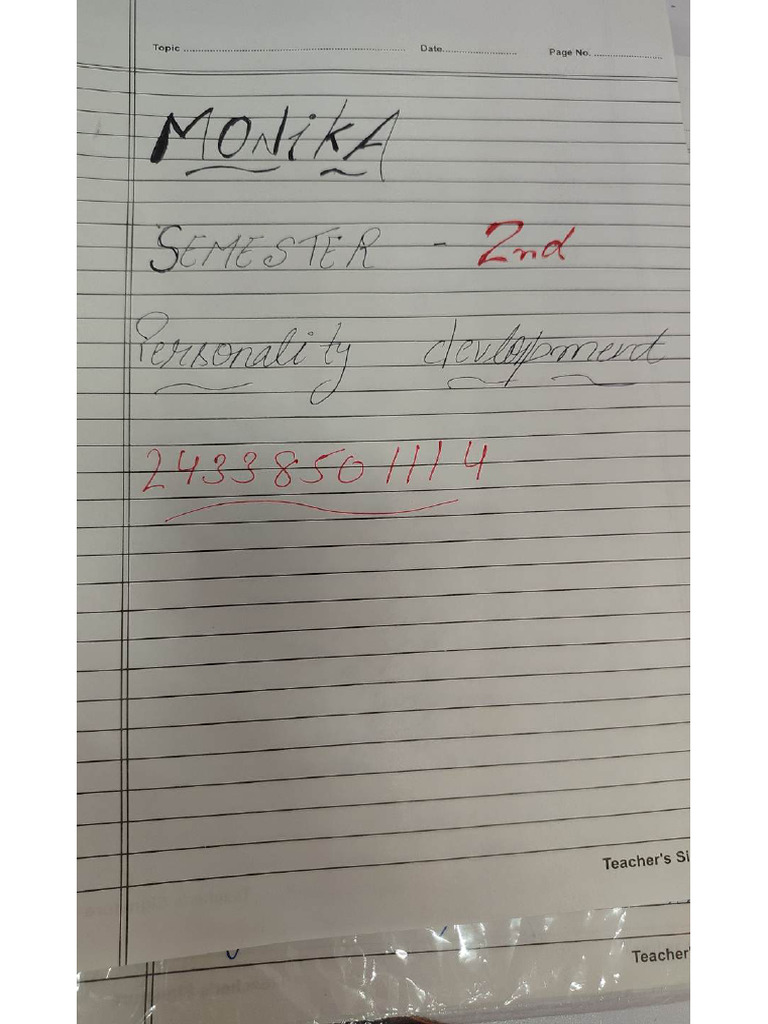 Topic ........................ Date........................ Page No. ........................
MONiKA
SEMESTER - 2nd
Personality development
24338501114
Teacher's Si
Teacher'